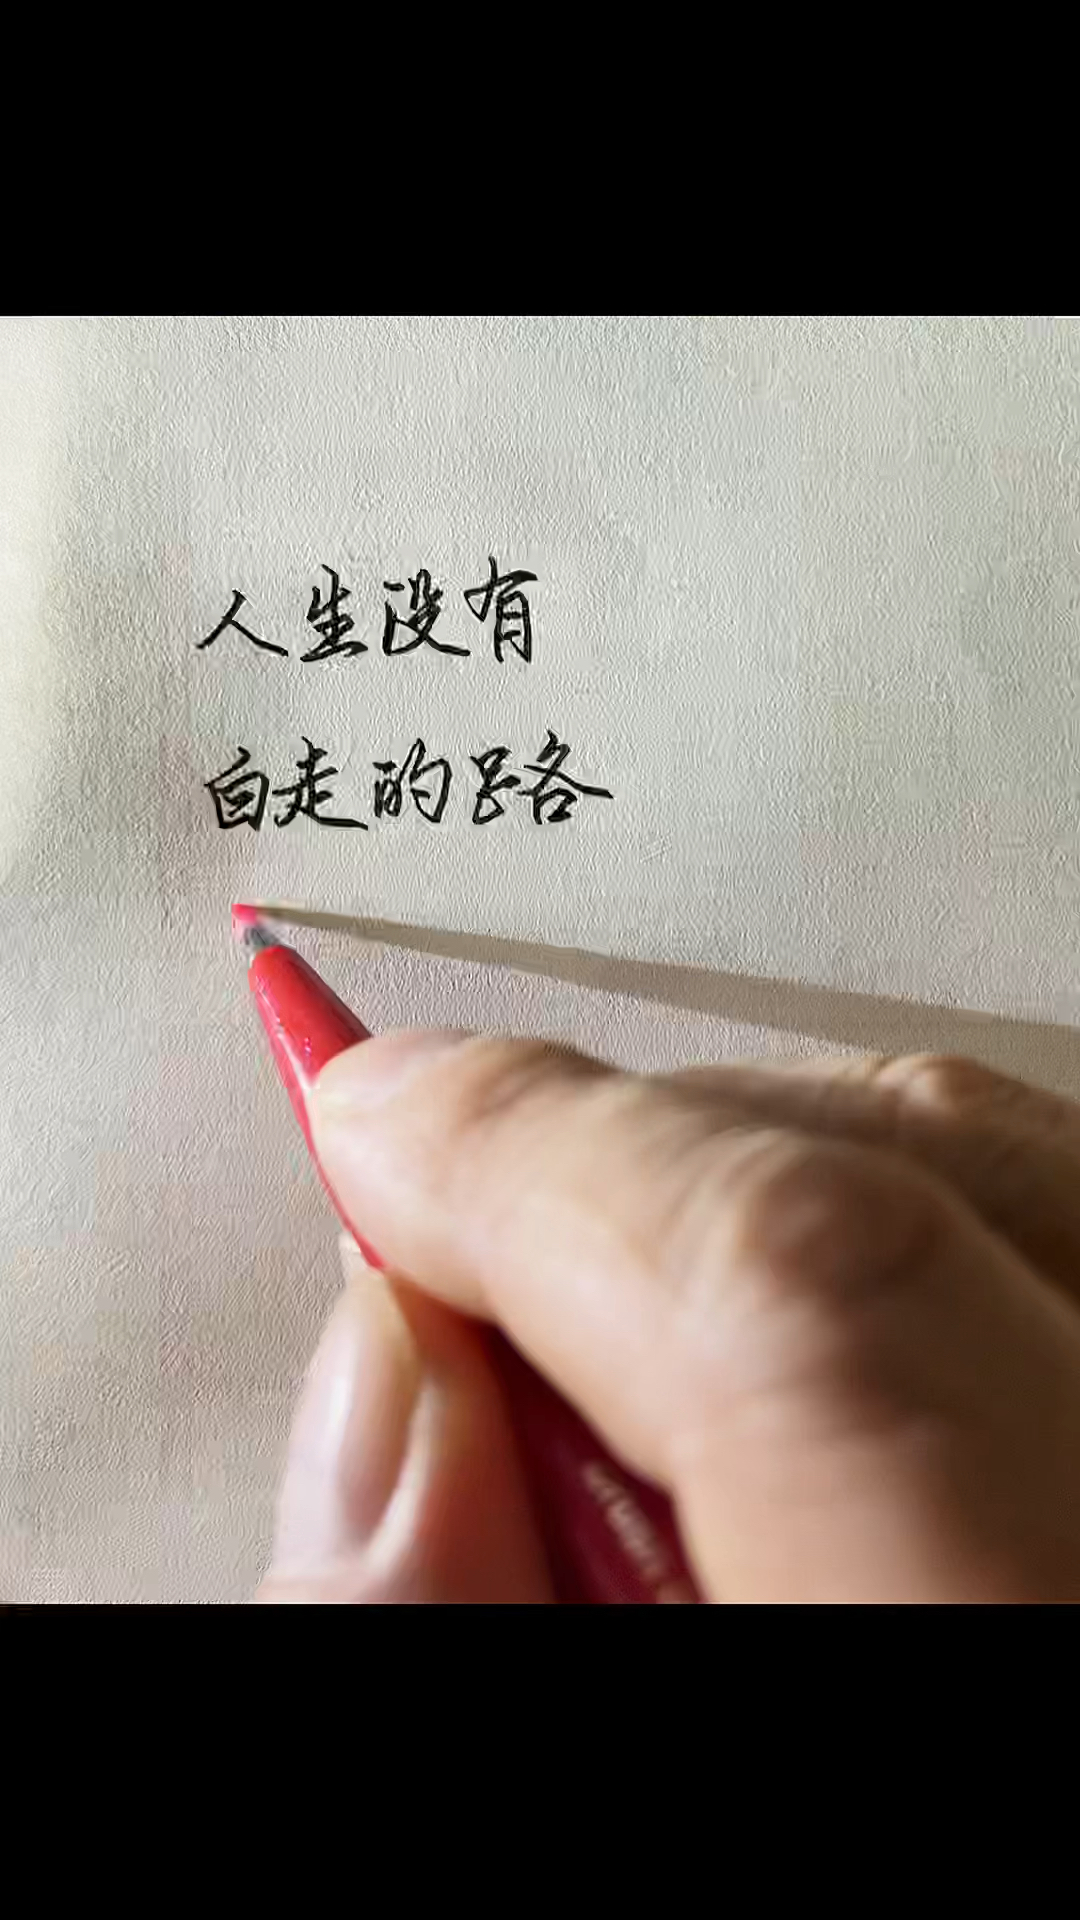 人生没有
白走的路